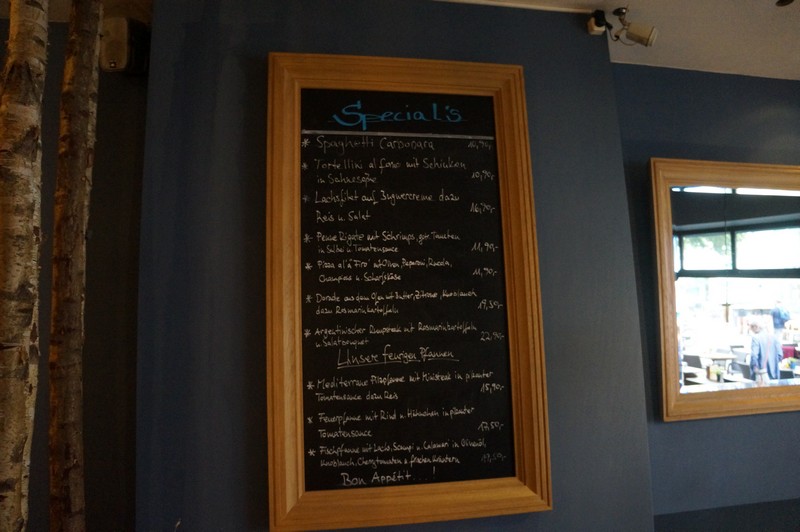 Special's
* Spaghetti Carbonara 10,90,-
* Tortellini al forno mit Schinken
in Sahnesoße 10,90,-
* Lachsfilet auf Ingwercreme dazu
Reis u. Salat 16,90,-
* Penne Rigate mit Schrimps, getr. Tomaten
in Salbei u Tomatensauce 11,90,-
* Pizza al "a" Firo" mit Peperoni, Rucola,
Champions u. Schafskäse 11,90,-
* Dorade aus dem Ofen mit Butter, Zitrone, Knoblauch
dazu Rosmarinkartoffeln 19,50,-
* Argentinischer Rumpsteak mit Rosmarinkartoffeln
u. Salatbouquet 22,90,-
Unser feurigen Pfannen
* Mediterrane Pilzpfanne mit Ministeak in pikanter
Tomatensauce dazu Reis 15,90,-
* Feuerpfanne mit Rind u. Hähnchen in pikanter
Tomatensauce 17,50,-
* Fischpfanne mit Lachs, Scampi u. Calamari in Olivenöl,
Knoblauch, Cherrytomaten u frischen Kräutern
Bon Appétit...!